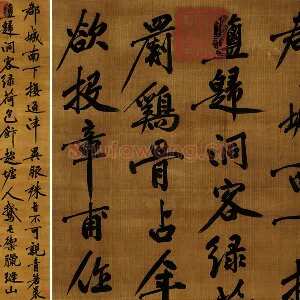 郡城南下接通津異服殊音不可親青箬裹
鹽歸洞客綠荷包飯趁墟人鵝毛禦臘縫山
鹽歸洞客綠荷
罽鷄骨占年
欲投章甫作